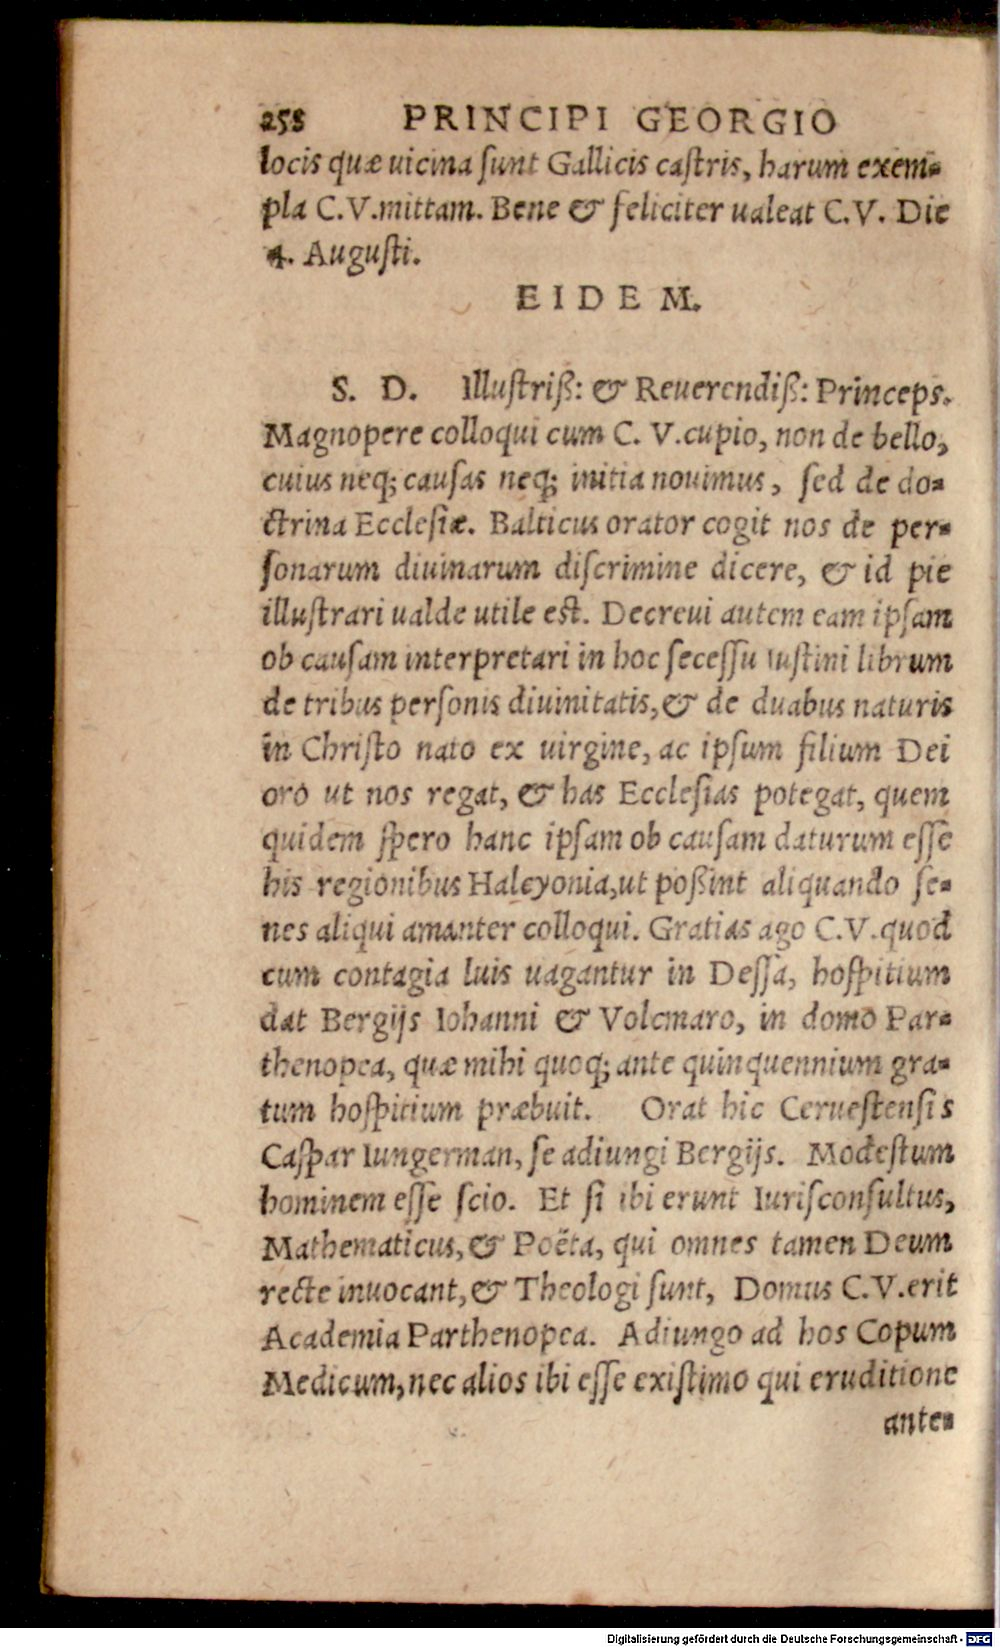 258 PRINCIPI GEORGIO
locis quæ uicina ſunt Gallicis caſtris, harum exem-
pla C.V.mittam. Bene & feliciter ualeat C.V. Die
4. Auguſti.
EIDEM.
S. D. Illuſtriß: & Reuerendiß: Princeps.
Magnopere colloqui cum C. V.cupio, non de bello,
cuius neq; cauſas neq; initia nouimus, ſed de do-
ctrina Eccleſiæ. Balticus orator cogit nos de per-
ſonarum diuinarum diſcrimine dicere, & id pie
illuſtrari ualde utile est. Decreui autem eam ipſam
ob cauſam interpretari in hoc ſeceſſu Iuſtini librum
de tribus perſonis diuinitatis, & de duabus naturis
in Chriſto nato ex uirgine, ac ipſum filium Dei
oro ut nos regat, & has Eccleſias potegat, quem
quidem ſpero hanc ipſam ob cauſam daturum eſſe
his regionibus Halcyonia,ut poßint aliquando ſe-
nes aliqui amanter colloqui. Gratias ago C.V.quod
cum contagia luis uagantur in Deſſa, hoſpitium
dat Bergijs Iohanni & Volemaro, in domo Par-
thenopea, quæ mihi quoq; ante quinquennium gra-
tum hoſpitium præbuit. Orat hic Cerueſtenſis
Caſpar Iungerman, ſe adiungi Bergijs. Modeſtum
hominem eſſe ſcio. Et ſi ibi erunt Iuriſconſultus,
Mathematicus, & Poëta, qui omnes tamen Deum
recte inuocant, & Theologi ſunt, Domus C.V.erit
Academia Parthenopea. Adiungo ad hos Copum
Medicum, nec alios ibi eſſe exiſtimo qui eruditione
ante-
Digitalisierung gefördert durch die Deutsche Forschungsgemeinschaft - DFG